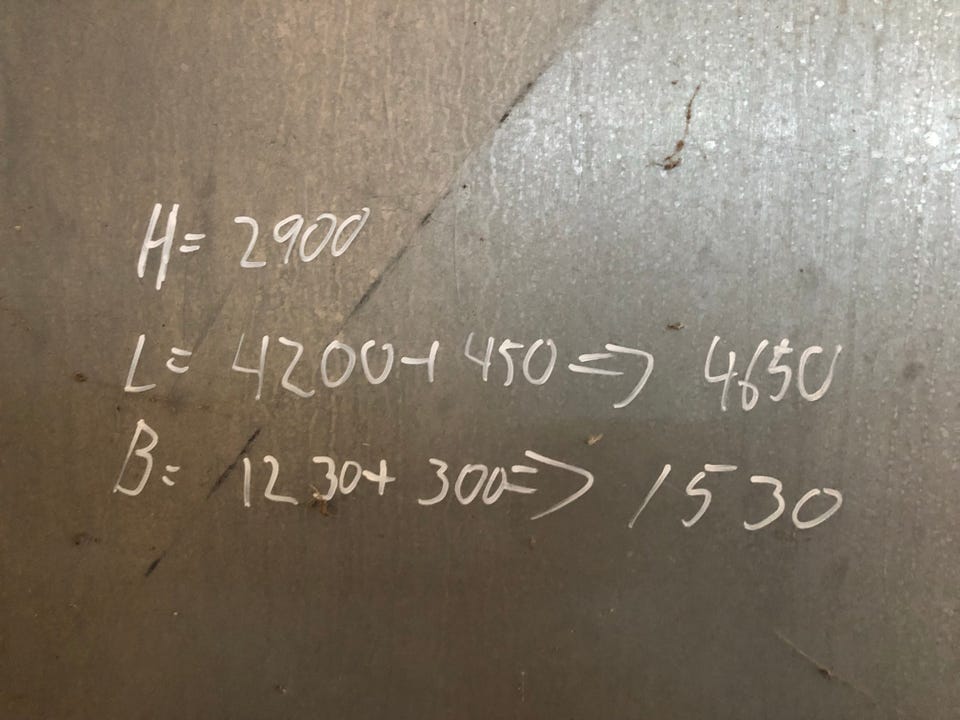 H= 2900
L= 4200+ 450 => 4650
B= 1230+ 300=> 1530